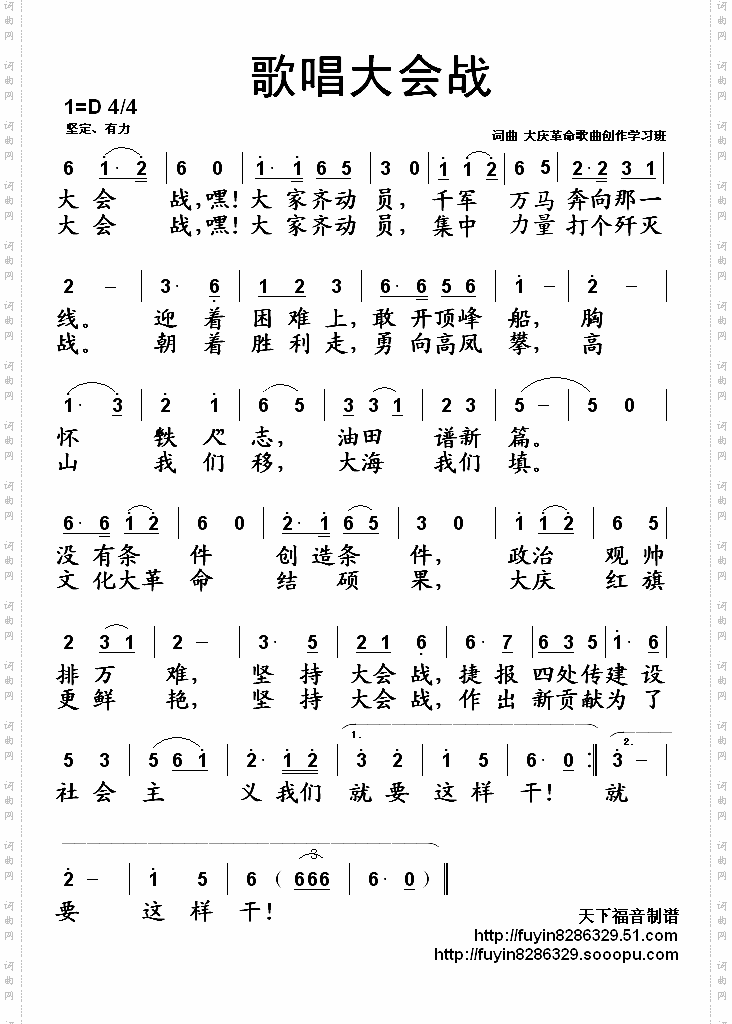 歌唱大会战
1=D 4/4
坚定、有力
词曲 大庆革命歌曲创作学习班
6 1· 2 | 6 0 | 1· 1 6 5 | 3 0 | 1 1 2 | 6 5 | 2· 2 3 1 |
大 会 战,嘿! 大 家 齐动 员, 千军 万 马 奔向那一
大 会 战,嘿! 大 家 齐动 员, 集中 力 量 打个歼灭
2 – | 3· 6 | 1 2 3 | 6· 6 5 6 | 1 – | 2 – |
线。 迎 着 困 难 上, 敢 开顶峰 船, 胸
战。 朝 着 胜 利 走, 勇 向高凤 攀, 高
1· 3 | 2 1 | 6 5 | 3 3 1 | 2 3 | 5 – | 5 0 |
怀 铁 人 志, 油田 谱新 篇。
山 我 们 移, 大海 我们 填。
6· 6 1 2 | 6 0 | 2· 1 6 5 | 3 0 | 1 1 2 | 6 5 |
没 有条 件 创 造条 件, 政治 观 帅
文 化大革 命 结 硕 果, 大庆 红 旗
2 3 1 | 2 – | 3· 5 | 2 1 6 | 6· 7 | 6 3 5 | 1· 6 |
排 万 难, 坚 持 大会 战, 捷 报 四处传 建 设
更 鲜 艳, 坚 持 大会 战, 作 出 新贡献 为 了
1. 2.
5 3 | 5 6 1 | 2· 1 2 | 3 2 | 1 5 | 6· 0 :‖ 3 – |
社 会 主 义 我们 就 要 这 样 干! 就
3
2 – | 1 5 | 6 ( 666 | 6· 0 ) ‖
要 这 样 干!
天下福音制谱
http://fuyin8286329.51.com
http://fuyin8286329.sooopu.com
词曲网